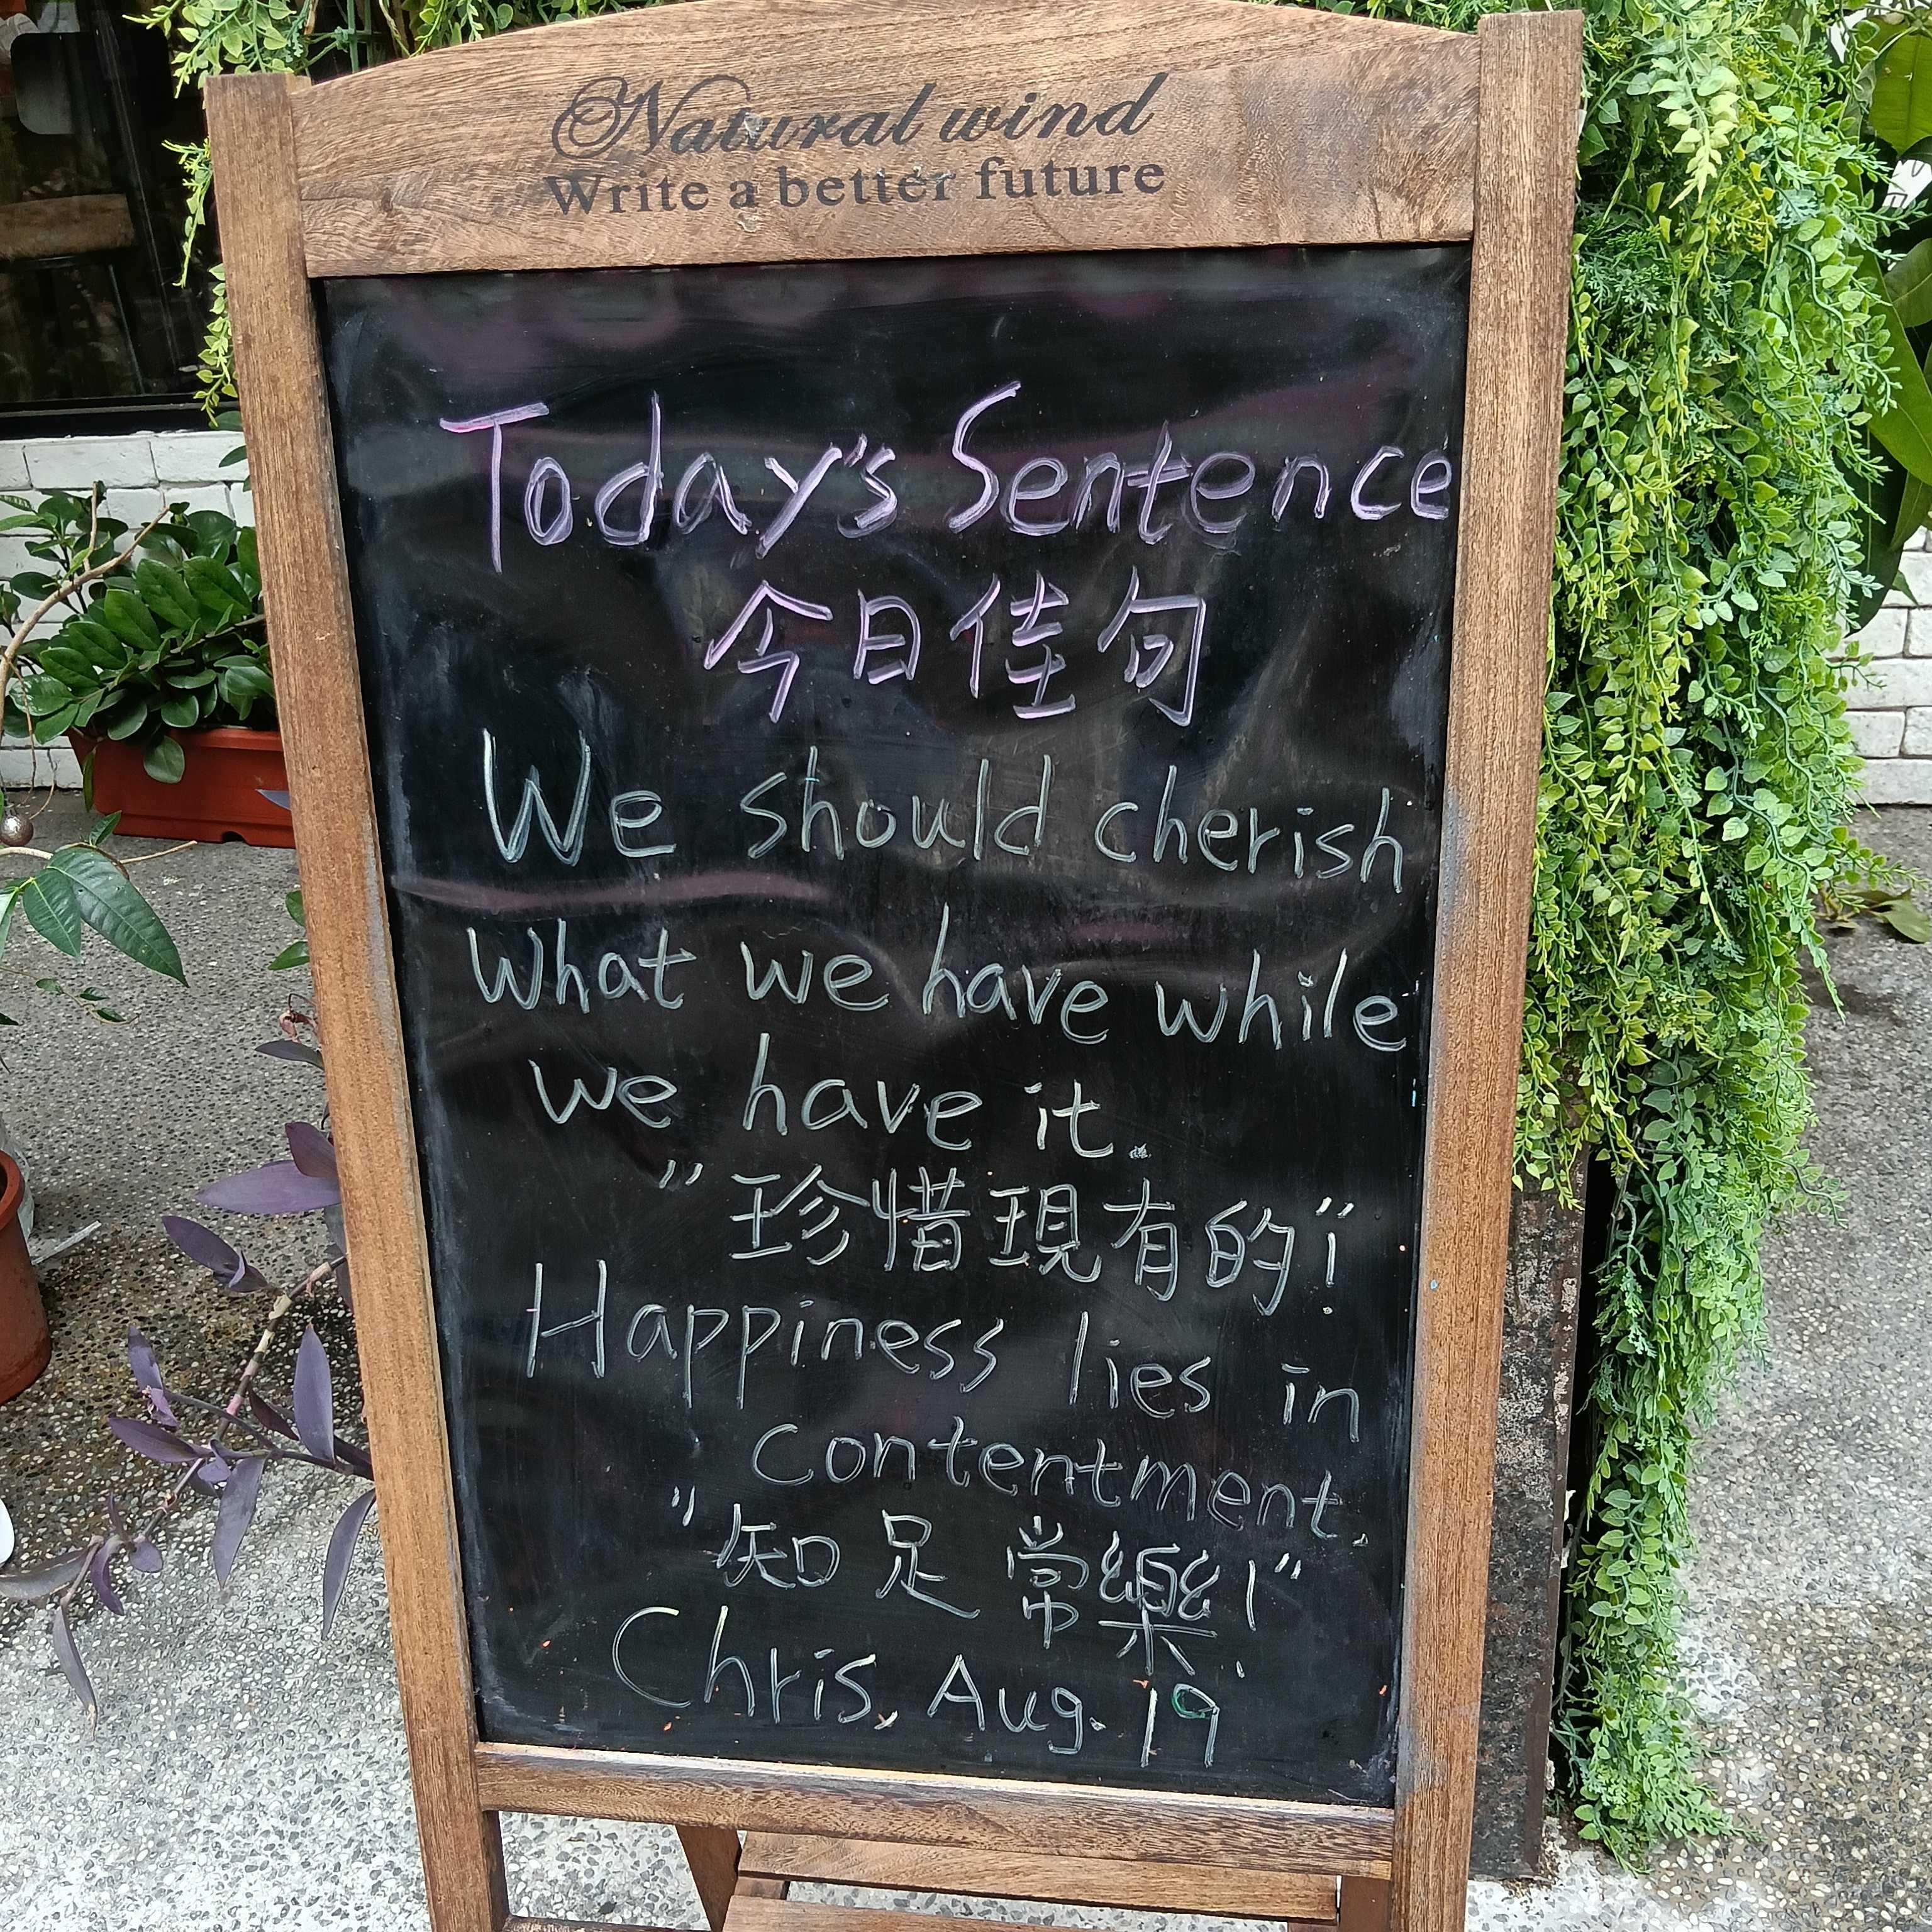 Natural wind
Write a better future
Today's Sentence
今日佳句
We should cherish
what we have while
we have it.
"珍惜現有的!"
Happiness lies in
contentment.
"知足常樂!"
Chris, Aug. 19